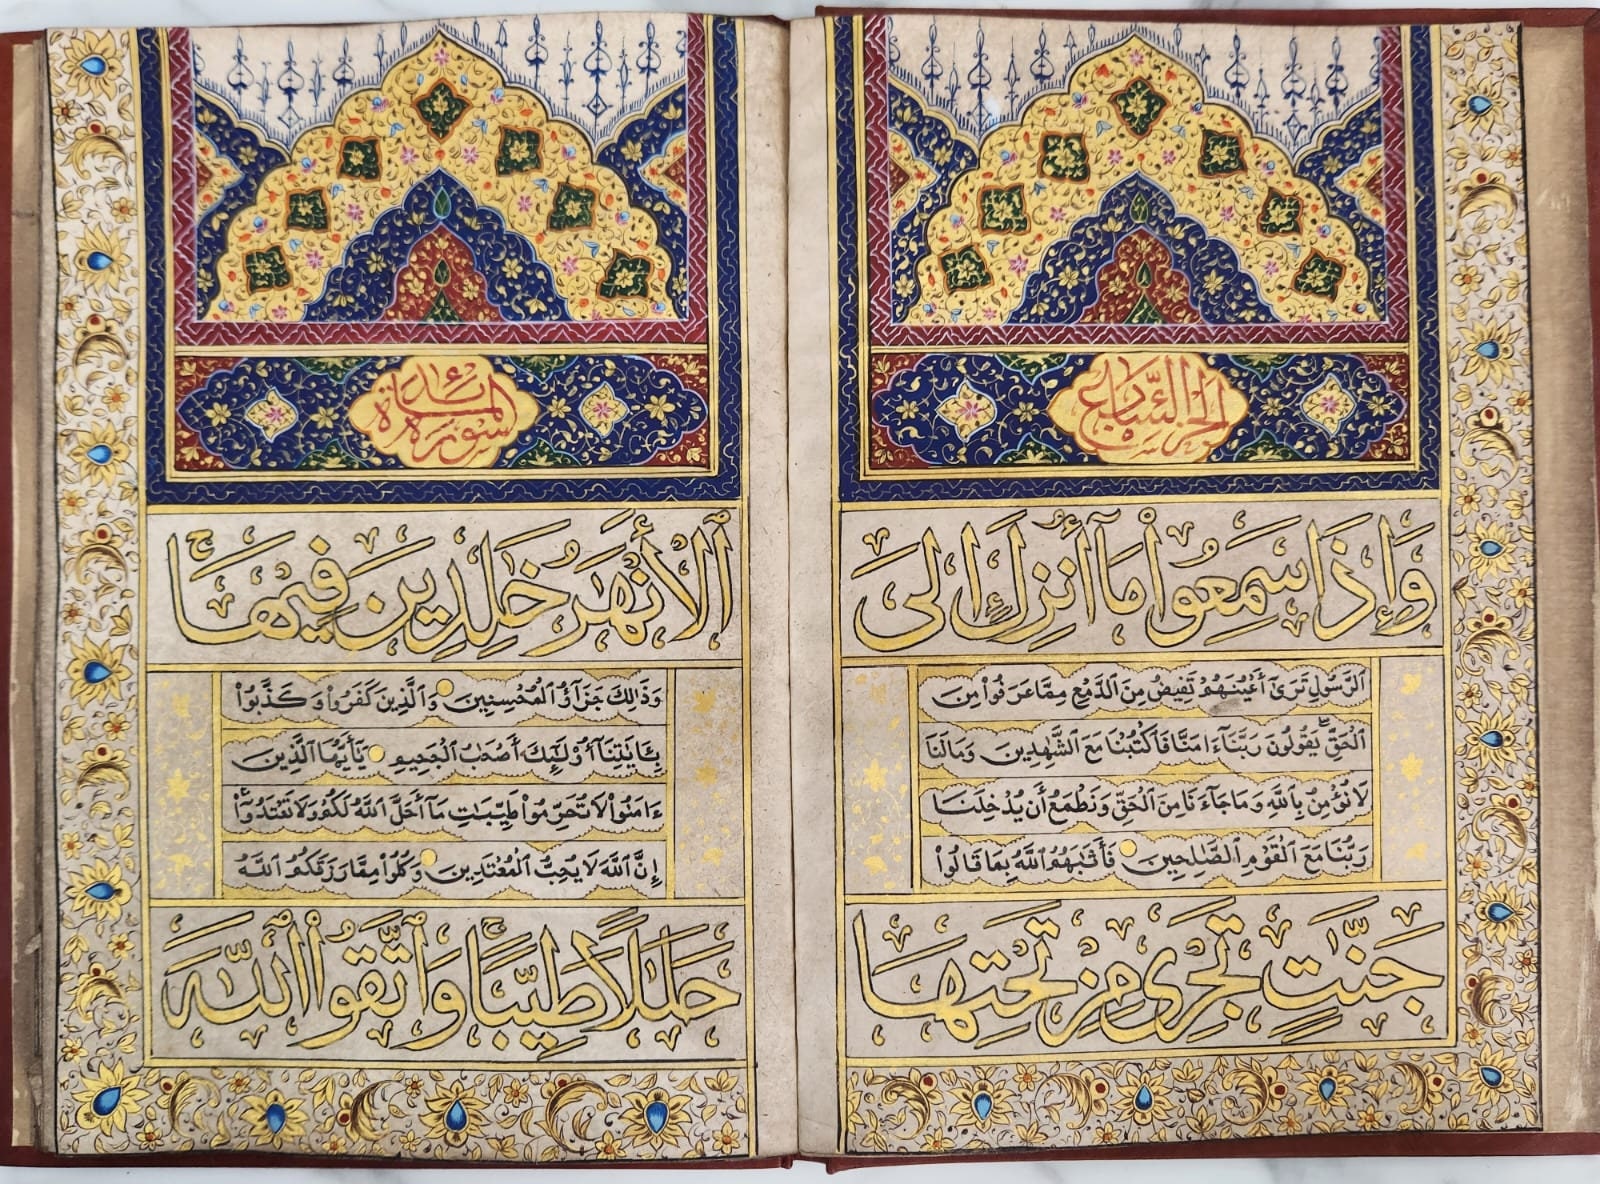 الجزء السابع
وَإِذَا سَمِعُوا۟ مَآ أُنزِلَ إِلَى
ٱلرَّسُولِ تَرَىٰٓ أَعْيُنَهُمْ تَفِيضُ مِنَ ٱلدَّمْعِ مِمَّا عَرَفُوا۟ مِنَ
ٱلْحَقِّ ۖ يَقُولُونَ رَبَّنَآ ءَامَنَّا فَٱكْتُبْنَا مَعَ ٱلشَّٰهِدِينَ وَمَا لَنَا
لَا نُؤْمِنُ بِٱللَّهِ وَمَا جَآءَنَا مِنَ ٱلْحَقِّ وَنَطْمَعُ أَن يُدْخِلَنَا
رَبُّنَا مَعَ ٱلْقَوْمِ ٱلصَّٰلِحِينَ فَأَثَٰبَهُمُ ٱللَّهُ بِمَا قَالُوا۟
جَنَّٰتٍ تَجْرِى مِن تَحْتِهَا
سورة المائدة
ٱلْأَنْهَٰرُ خَٰلِدِينَ فِيهَا ۚ
وَذَٰلِكَ جَزَآءُ ٱلْمُحْسِنِينَ وَٱلَّذِينَ كَفَرُوا۟ وَكَذَّبُوا۟
بِـَٔايَٰتِنَآ أُو۟لَٰٓئِكَ أَصْحَٰبُ ٱلْجَحِيمِ يَٰٓأَيُّهَا ٱلَّذِينَ
ءَامَنُوا۟ لَا تُحَرِّمُوا۟ طَيِّبَٰتِ مَآ أَحَلَّ ٱللَّهُ لَكُمْ وَلَا تَعْتَدُوٓا۟ ۚ
إِنَّ ٱللَّهَ لَا يُحِبُّ ٱلْمُعْتَدِينَ وَكُلُوا۟ مِمَّا رَزَقَكُمُ ٱللَّهُ
حَلَٰلًا طَيِّبًا ۚ وَٱتَّقُوا۟ ٱللَّهَ